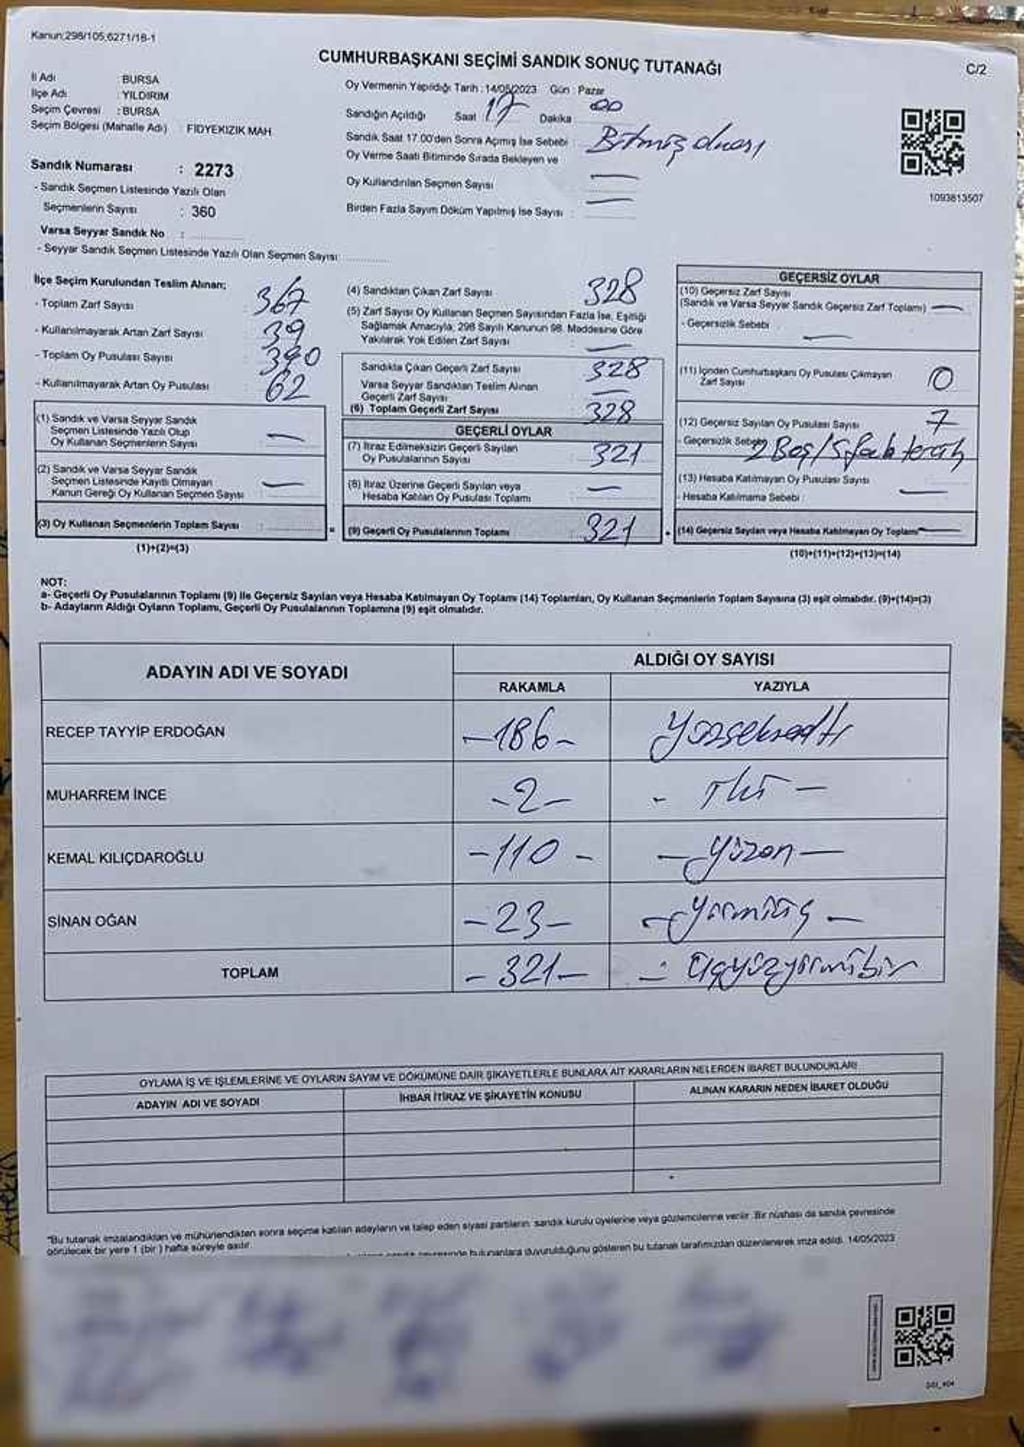 Kanun:298/105,6271/18-1
CUMHURBAŞKANI SEÇİMİ SANDIK SONUÇ TUTANAĞI
C/2
İl Adı : BURSA
İlçe Adı : YILDIRIM
Seçim Çevresi : BURSA
Seçim Bölgesi (Mahalle Adı) : FİDYEKIZIK MAH.
Sandık Numarası : 2273
- Sandık Seçmen Listesinde Yazılı Olan
Seçmenlerin Sayısı : 360
Varsa Seyyar Sandık No :
- Seyyar Sandık Seçmen Listesinde Yazılı Olan Seçmen Sayısı:
Oy Vermenin Yapıldığı Tarih : 14/05/2023 Gün : Pazar
Sandığın Açıldığı Saat 17 Dakika 00
Sandık Saat 17.00'den Sonra Açılmış İse Sebebi :
Oy Verme Saati Bitiminde Sırada Bekleyen ve
Oy Kullandırılan Seçmen Sayısı : —
Birden Fazla Sayım Döküm Yapılmış İse Sayısı : —
1093813507
İlçe Seçim Kurulundan Teslim Alınan;
- Toplam Zarf Sayısı : 367
- Kullanılmayarak Artan Zarf Sayısı : 39
- Toplam Oy Pusulası Sayısı : 390
- Kullanılmayarak Artan Oy Pusulası : 62
(1) Sandık ve Varsa Seyyar Sandık
Seçmen Listesinde Yazılı Olup
Oy Kullanan Seçmenlerin Sayısı : —
(2) Sandık ve Varsa Seyyar Sandık
Seçmen Listesinde Kayıtlı Olmayan
Kanun Gereği Oy Kullanan Seçmen Sayısı : —
(3) Oy Kullanan Seçmenlerin Toplam Sayısı :
(1)+(2)=(3)
(4) Sandıktan Çıkan Zarf Sayısı : 328
(5) Zarf Sayısı Oy Kullanan Seçmen Sayısından Fazla İse, Eşitliği
Sağlamak Amacıyla, 298 Sayılı Kanunun 98. Maddesine Göre
Yakılarak Yok Edilen Zarf Sayısı : —
Sandıkta Çıkan Geçerli Zarf Sayısı : 328
Varsa Seyyar Sandıktan Teslim Alınan
Geçerli Zarf Sayısı : —
(6) Toplam Geçerli Zarf Sayısı : 328
GEÇERLİ OYLAR
(7) İtiraz Edilmeksizin Geçerli Sayılan
Oy Pusulalarının Sayısı : 321
(8) İtiraz Üzerine Geçerli Sayılan veya
Hesaba Katılan Oy Pusulası Toplamı : —
(9) Geçerli Oy Pusulalarının Toplamı : 321
GEÇERSİZ OYLAR
(10) Geçersiz Zarf Sayısı
(Sandık ve Varsa Seyyar Sandık Geçersiz Zarf Toplamı) —
- Geçersizlik Sebebi : —
(11) İçinden Cumhurbaşkanı Oy Pusulası Çıkmayan
Zarf Sayısı : 0
(12) Geçersiz Sayılan Oy Pusulası Sayısı : 7
- Geçersizlik Sebebi : 2 Boş/5
(13) Hesaba Katılmayan Oy Pusulası Sayısı : —
- Hesaba Katılmama Sebebi :
(14) Geçersiz Sayılan veya Hesaba Katılmayan Oy Toplamı —
(10)+(11)+(12)+(13)=(14)
NOT:
a- Geçerli Oy Pusulalarının Toplamı (9) ile Geçersiz Sayılan veya Hesaba Katılmayan Oy Toplamı (14) Toplamları, Oy Kullanan Seçmenlerin Toplam Sayısına (3) eşit olmalıdır. (9)+(14)=(3)
b- Adayların Aldığı Oyların Toplamı, Geçerli Oy Pusulalarının Toplamına (9) eşit olmalıdır.
ADAYIN ADI VE SOYADI ALDIĞI OY SAYISI
RAKAMLA YAZIYLA
RECEP TAYYİP ERDOĞAN -186- Yüzseksenaltı
MUHARREM İNCE -2- - İki -
KEMAL KILIÇDAROĞLU -110- - yüzon -
SİNAN OĞAN -23- - yirmiüç -
TOPLAM -321- - üçyüzyirmibir
OYLAMA İŞ VE İŞLEMLERİNE VE OYLARIN SAYIM VE DÖKÜMÜNE DAİR ŞİKAYETLERLE BUNLARA AİT KARARLARIN NELERDEN İBARET BULUNDUKLARI
ADAYIN ADI VE SOYADI İHBAR İTİRAZ VE ŞİKAYETİN KONUSU ALINAN KARARIN NEDEN İBARET OLDUĞU
"Bu tutanak imzalandıktan ve mühürlendikten sonra seçime katılan adayların ve talep eden siyasi partilerin sandık kurulu üyelerine veya gözlemcilerine verilir. Bir nüshası da sandık çevresinde
görülecek bir yere 1 (bir) hafta süreyle asılır.
bulunanlara duyurulduğunu gösteren bu tutanak tarafımızdan düzenlenerek imza edildi. 14/05/2023